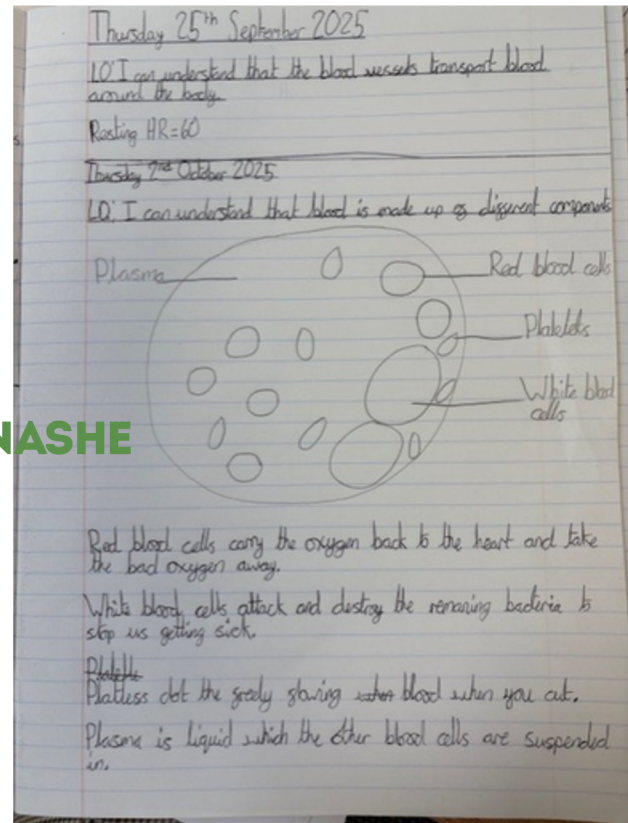 Thursday 25th September 2025
LO: I can understand that the blood vessels transport blood
around the body.
Resting HR=60
Thursday 2nd October 2025
LO: I can understand that blood is made up of different components
Plasma
Red blood cells
Platelets
White blood
cells
NASHE
Red blood cells carry the oxygen back to the heart and take
the bad oxygen away.
White blood cells attack and destroy the remaning bacteria to
stop us getting sick.
Platless clot the freely flowing blood when you cut.
Plasma is liquid which the other blood cells are suspended
in.